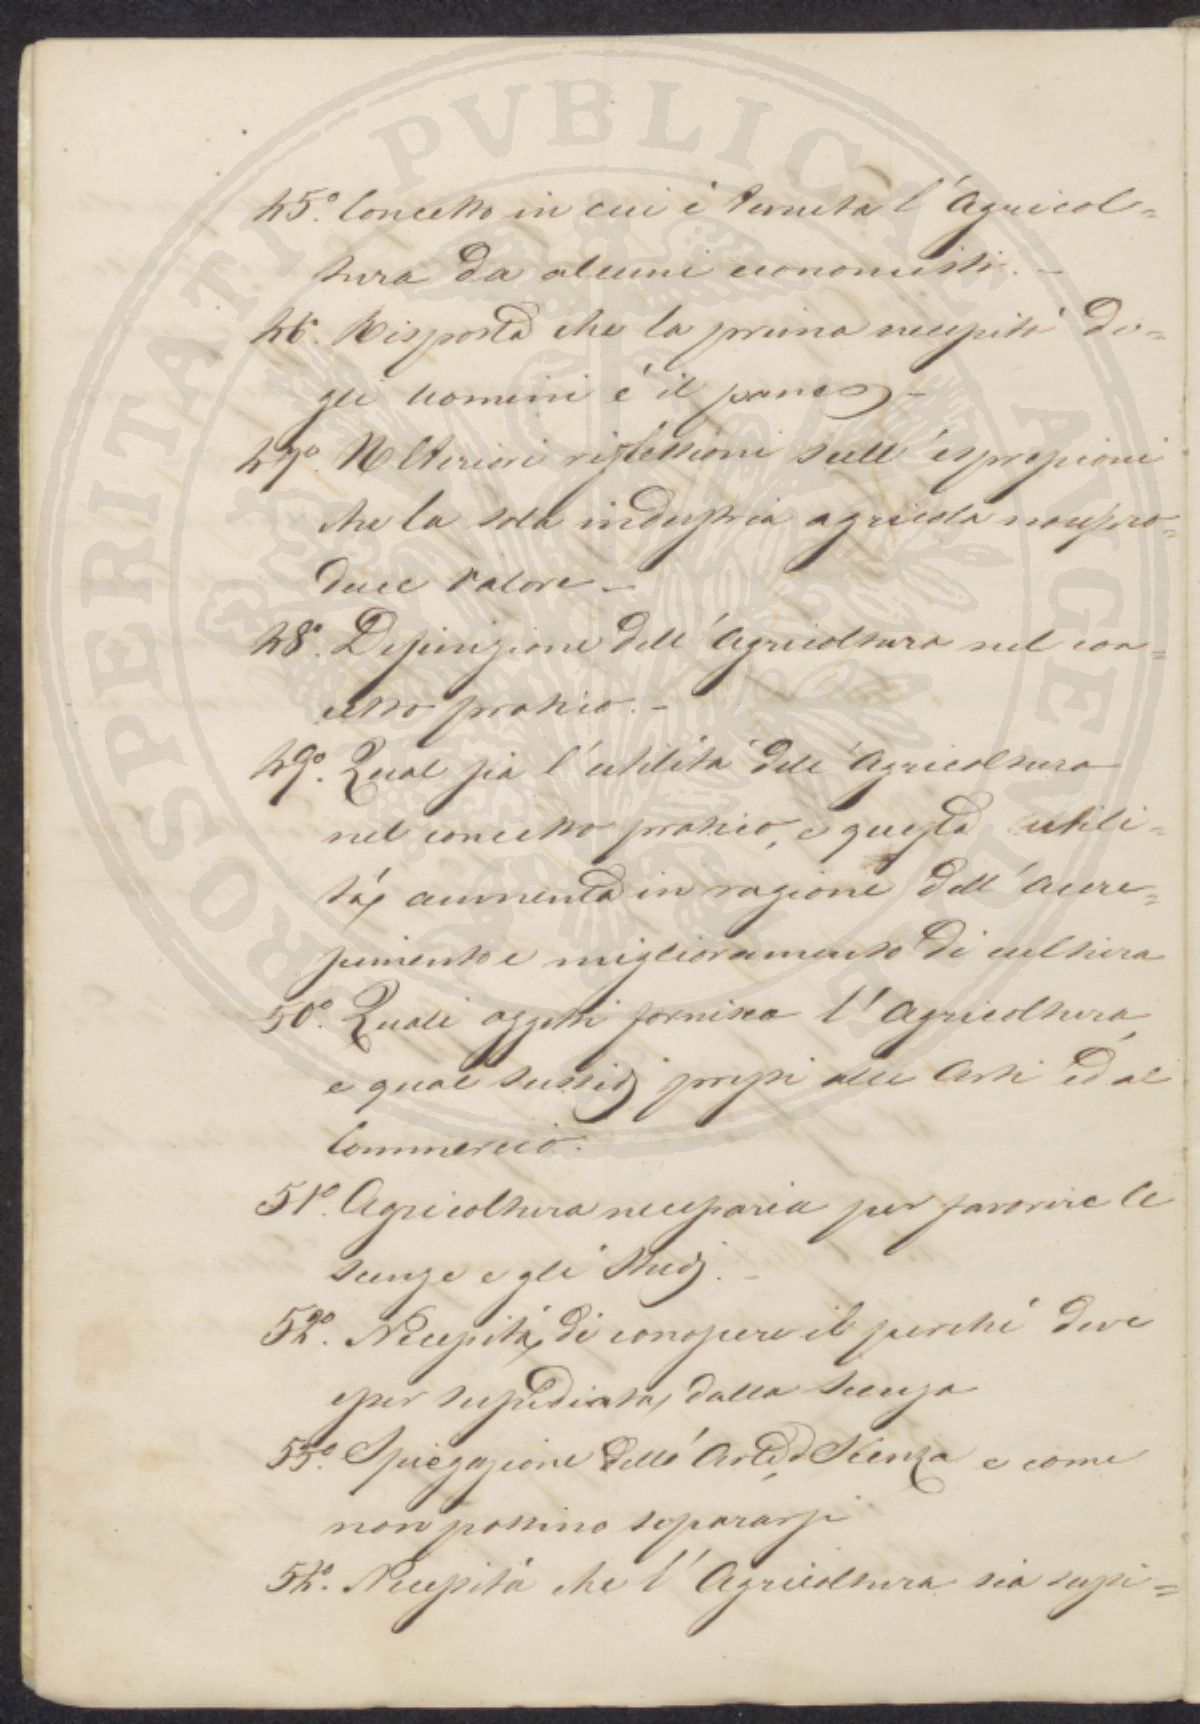 45.° Concetto in cui è tenuta l'Agricol=
tura da alcuni economisti. –
46. Risposta che la prima necessità de=
gli uomini é il pane –
47.° Ulteriori riflessioni sull'espressioni
che la sola industria agricola non pro=
duce valore –
48.° Definizione dell'Agricoltura nel con=
cetto pratico. –
49.° Qual sia l'utilità dell'Agricoltura
nel concetto pratico, e questa utili=
tà, aumenta in ragione dell'accre=
scimento e miglioramento di cultura
50.° Quali oggetti fornisca l'Agricoltura,
e quai sussidj presti alle Arti ed al
Commercio.
51.° Agricoltura necessaria per favorire le
scenze e gli Studj. –
52.° Necessità di conoscere il perché deve
esser sussidiata, dalla Scenza
53.° Spiegazione dell'Arte, e Scenza e come
non possino separarsi
54.° Necessità che l'Agricoltura sia sussi=
PROSPERITATI PVBLICAE AVGENDAE